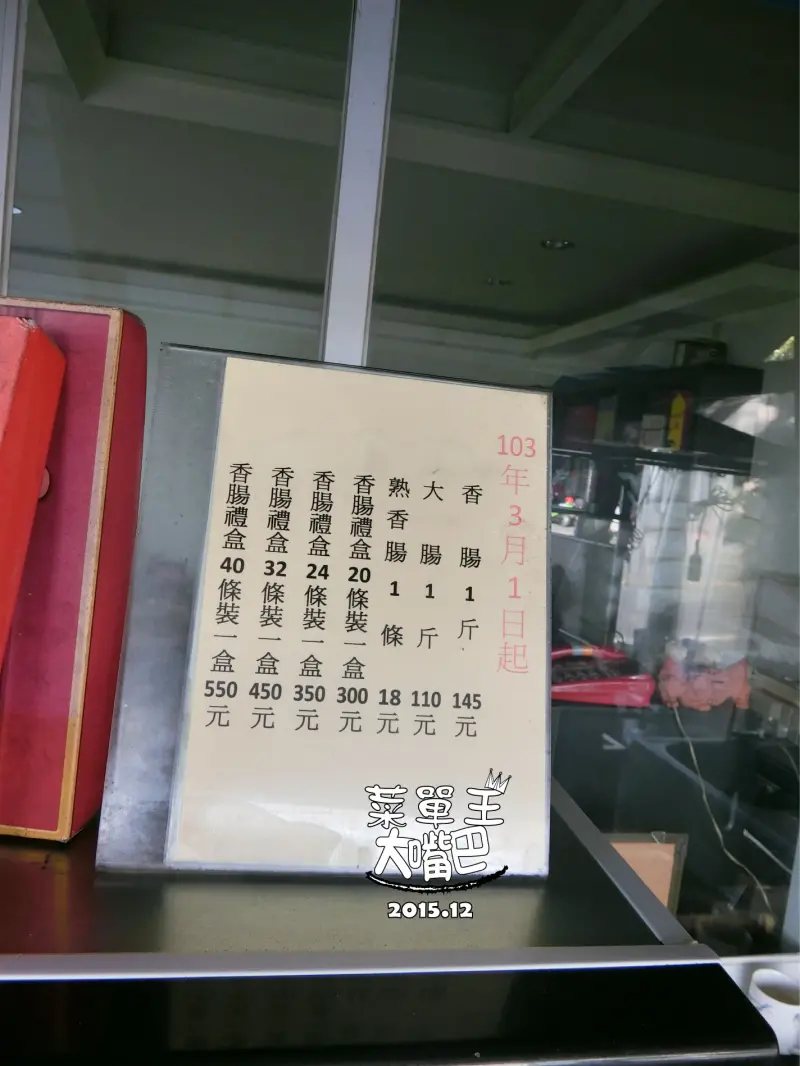 103年3月1日起
香腸1斤145元
大腸1斤110元
熟香腸1條18元
香腸禮盒20條裝一盒300元
香腸禮盒24條裝一盒350元
香腸禮盒32條裝一盒450元
香腸禮盒40條裝一盒550元
菜單王
大嘴巴
2015.12